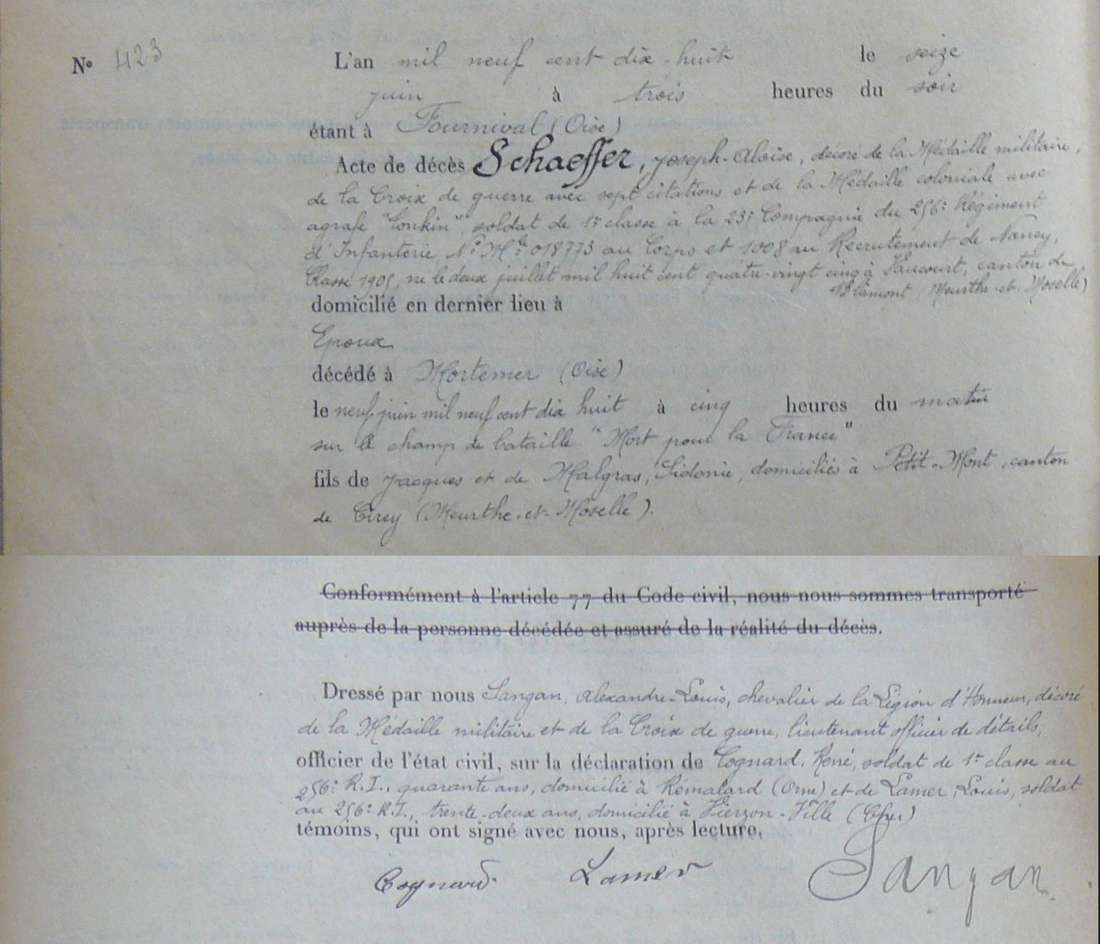 N° 423
L'an mil neuf cent dix-huit le seize
juin à trois heures du soir
étant à Fournival (Oise)
Acte de décès Schaeffer, Joseph-Aloïse, décoré de la Médaille militaire,
de la Croix de guerre avec sept citations et de la Médaille coloniale avec
agrafe "Tonkin", soldat de 1e classe à la 23e Compagnie du 256e Régiment
d'Infanterie, N° Mle 018773 au Corps et 1008 au Recrutement de Nancy,
Classe 1905, né le deux juillet mil huit cent quatre-vingt cinq à Vaucourt, canton de
Blamont (Meurthe-et-Moselle)
domicilié en dernier lieu à
Epoux
décédé à Mortemer (Oise)
le neuf juin mil neuf cent dix huit à cinq heures du matin
sur le champ de bataille "Mort pour la France"
fils de Jacques et de Malgras, Sidonie, domiciliés à Petit-Mont, canton
de Cirey (Meurthe-et-Moselle).
Conformément à l'article 77 du Code civil, nous nous sommes transporté
auprès de la personne décédée et assuré de la réalité du décès.
Dressé par nous Sangan, Alexandre-Louis, chevalier de la Légion d'Honneur, décoré
de la Médaille militaire et de la Croix de guerre, lieutenant officier de détails,
officier de l'état civil, sur la déclaration de Cognard, René, soldat de 1e classe au
256e R.I., quarante ans, domicilié à Rémalard (Orne) et de Lamer, Louis, soldat
au 256e R.I., trente-deux ans, domicilié à Vierzon-Ville (Cher)
témoins, qui ont signé avec nous, après lecture.
Cognard Lamer Sangan